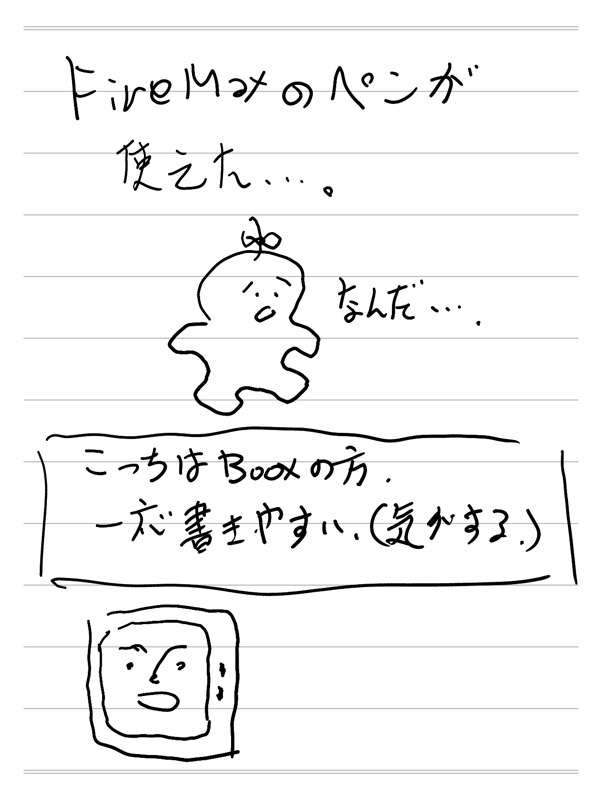 FireMaxのペンが
使えた…。
なんだ….
こっちはBooxの方.
一応書きやすい.(気がする.)